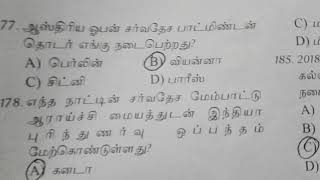 77. ஆஸ்திரிய ஓபன் சர்வதேச பாட்மிண்டன்
தொடர் எங்கு நடைபெற்றது?
A) பெர்லின் B) வியன்னா
C) சிட்னி D) பாரீஸ்
178. எந்த நாட்டின் சர்வதேச மேம்பாட்டு
ஆராய்ச்சி மையத்துடன் இந்தியா
புரிந்துணர்வு ஒப்பந்தம்
மேற்கொண்டுள்ளது?
A) கனடா
C)
D)
185. 2018
A)
C)